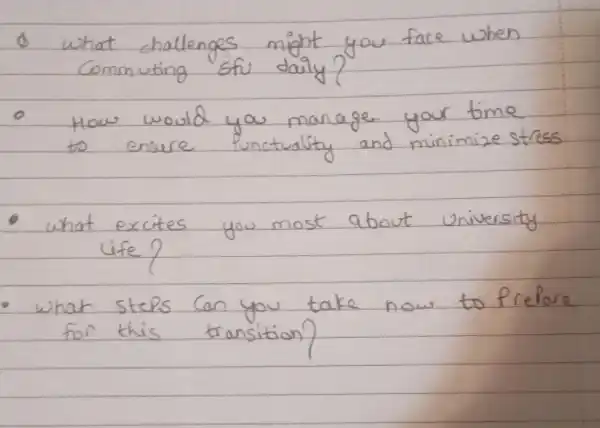 • what challenges might you face when
Commuting SFU daily?
• How would you manage your time
to ensure Punctuality and minimize stress
• what excites you most about University
Life?
• what steps Can you take now to Prepare
for this transition?